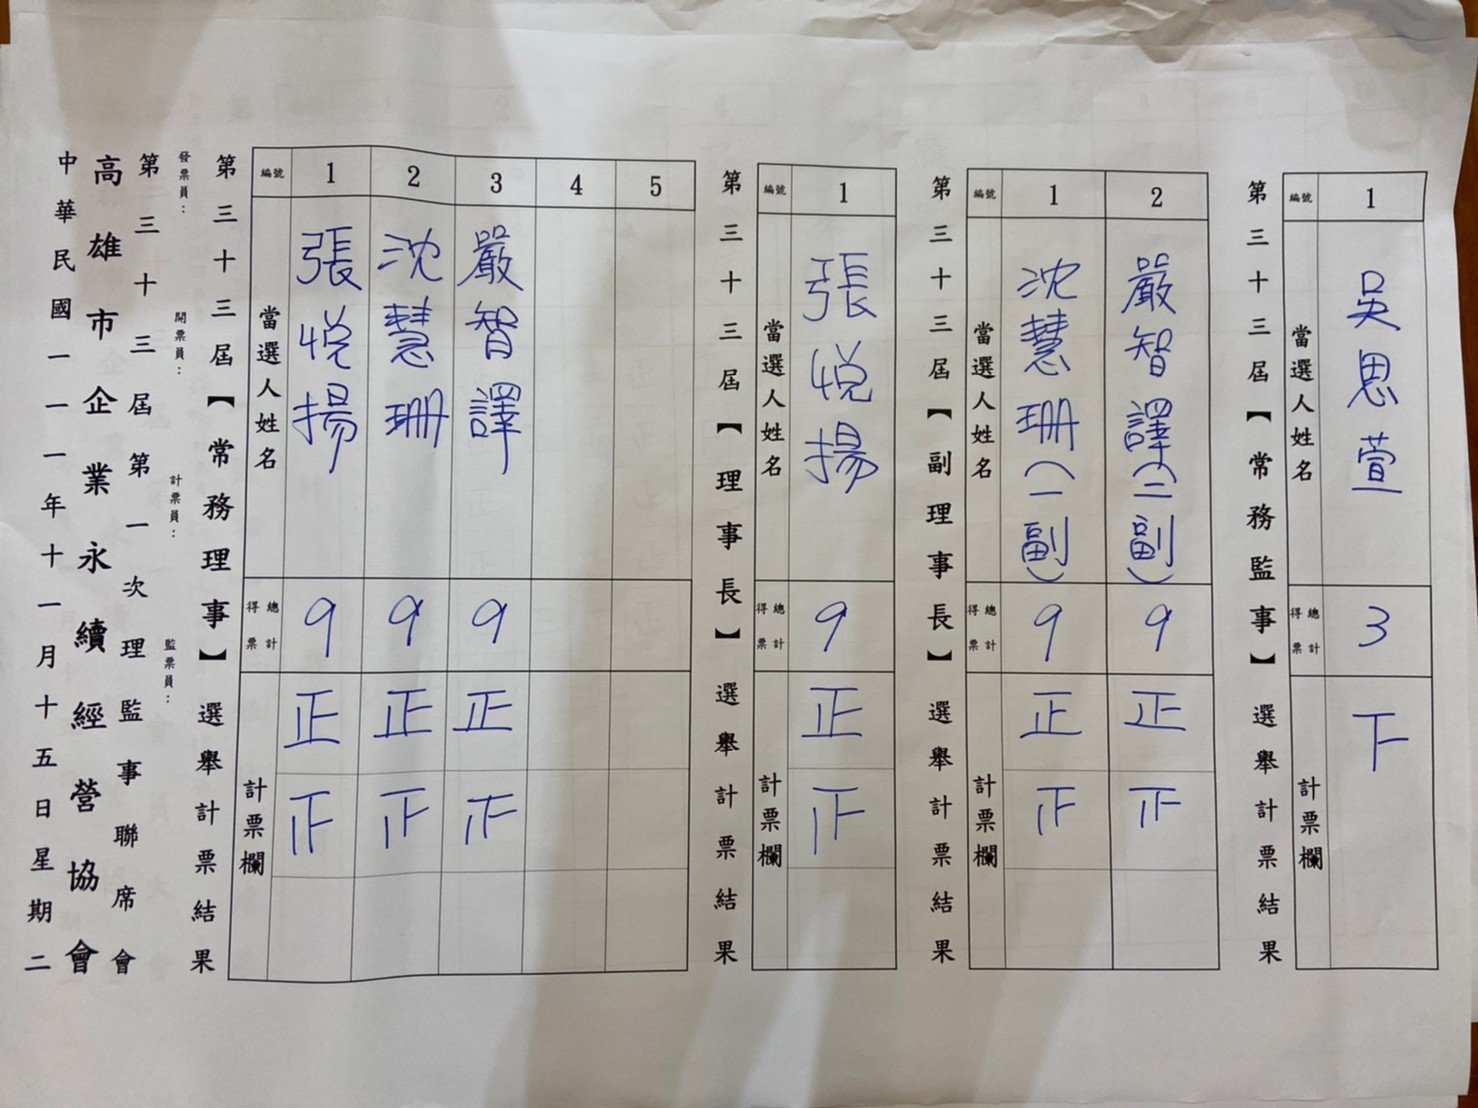 中華民國一一一年十一月十五日星期二
高雄市企業永續經營協會
第三十三屆第一次理監事聯席會
發票員： 開票員： 計票員： 監票員：
第三十三屆【常務理事】選舉計票結果
編號 當選人姓名 總計得票 計票欄
1 張悅揚 9 正正
2 沈慧珊 9 正正
3 嚴智譯 9 正正
4
5
第三十三屆【理事長】選舉計票結果
編號 當選人姓名 總計得票 計票欄
1 張悅揚 9 正正
第三十三屆【副理事長】選舉計票結果
編號 當選人姓名 總計得票 計票欄
1 沈慧珊(一副) 9 正正
2 嚴智譯(二副) 9 正正
第三十三屆【常務監事】選舉計票結果
編號 當選人姓名 總計得票 計票欄
1 吳思萱 3 下